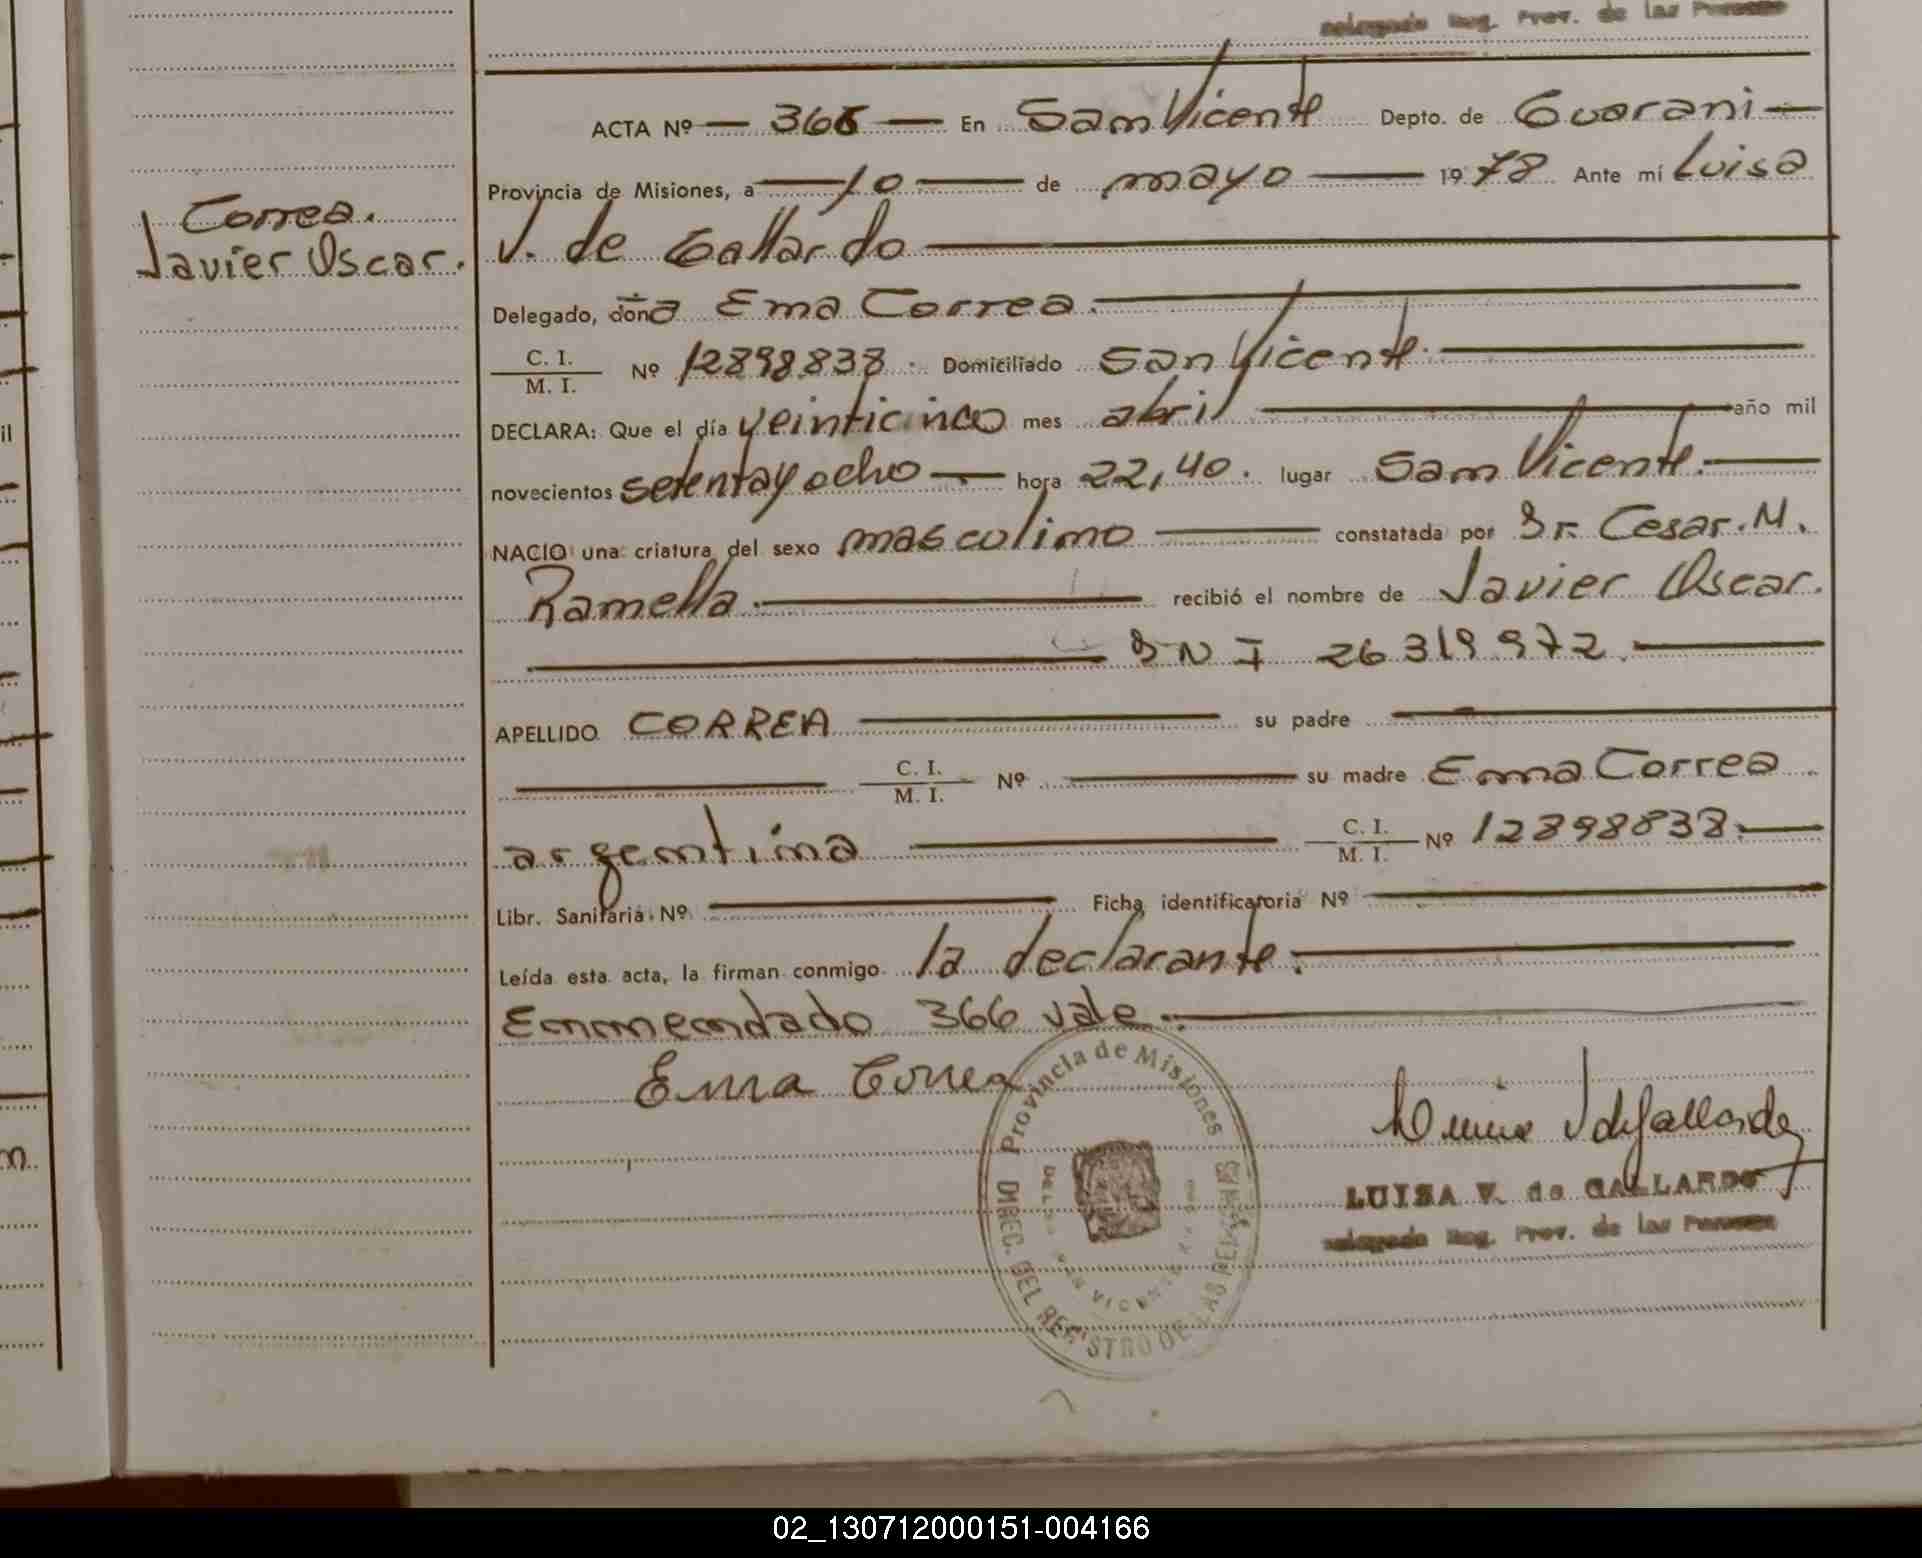 Reg. Prov. de las
ACTA Nº 366 En San Vicente Depto. de Guarani
Provincia de Misiones, a 10 de mayo 1978 Ante mí Luisa
V. de Gallardo
Correa.
Javier Oscar.
Delegado, doña Ema Correa.
C. I.
M. I. Nº 12898838. Domiciliado San Vicente.
DECLARA: Que el día veinticinco mes abril año mil
novecientos setentayocho hora 22,40. lugar San Vicente.
NACIO una criatura del sexo masculino constatada por Dr. Cesar. M.
Ramella. recibió el nombre de Javier Oscar.
DNI 26319972.
APELLIDO CORREA su padre
C. I.
M. I. Nº su madre Ema Correa
argentina C. I.
M. I. Nº 12898838.
Libr. Sanitaria Nº Ficha identificatoria Nº
Leída esta acta, la firman conmigo la declarante.
Enmendado 366 vale.
Ema Correa
Provincia de Misiones
DIREC. DEL REGISTRO DE LAS PERSONAS
SAN VICENTE
LUISA V. de GALLARDO
Reg. Prov. de las
il
m.
02_130712000151-004166